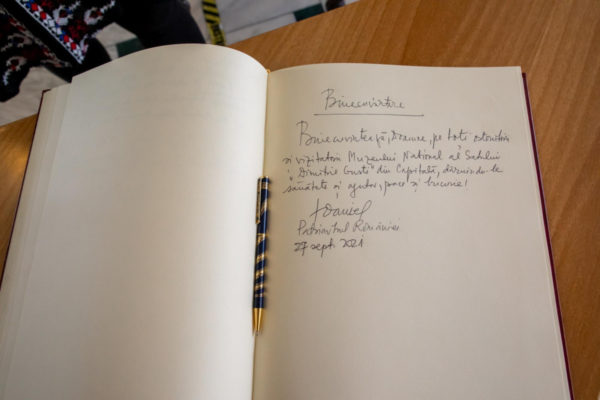 Binecuvântare
Binecuvintează, Doamne, pe toți ostenitorii
și vizitatorii Muzeului Național al Satului
„Dimitrie Gusti” din Capitală, dăruindu-le
sănătate și ajutor, pace și bucurie!
† Daniel
Patriarhul României
27 sept 2021